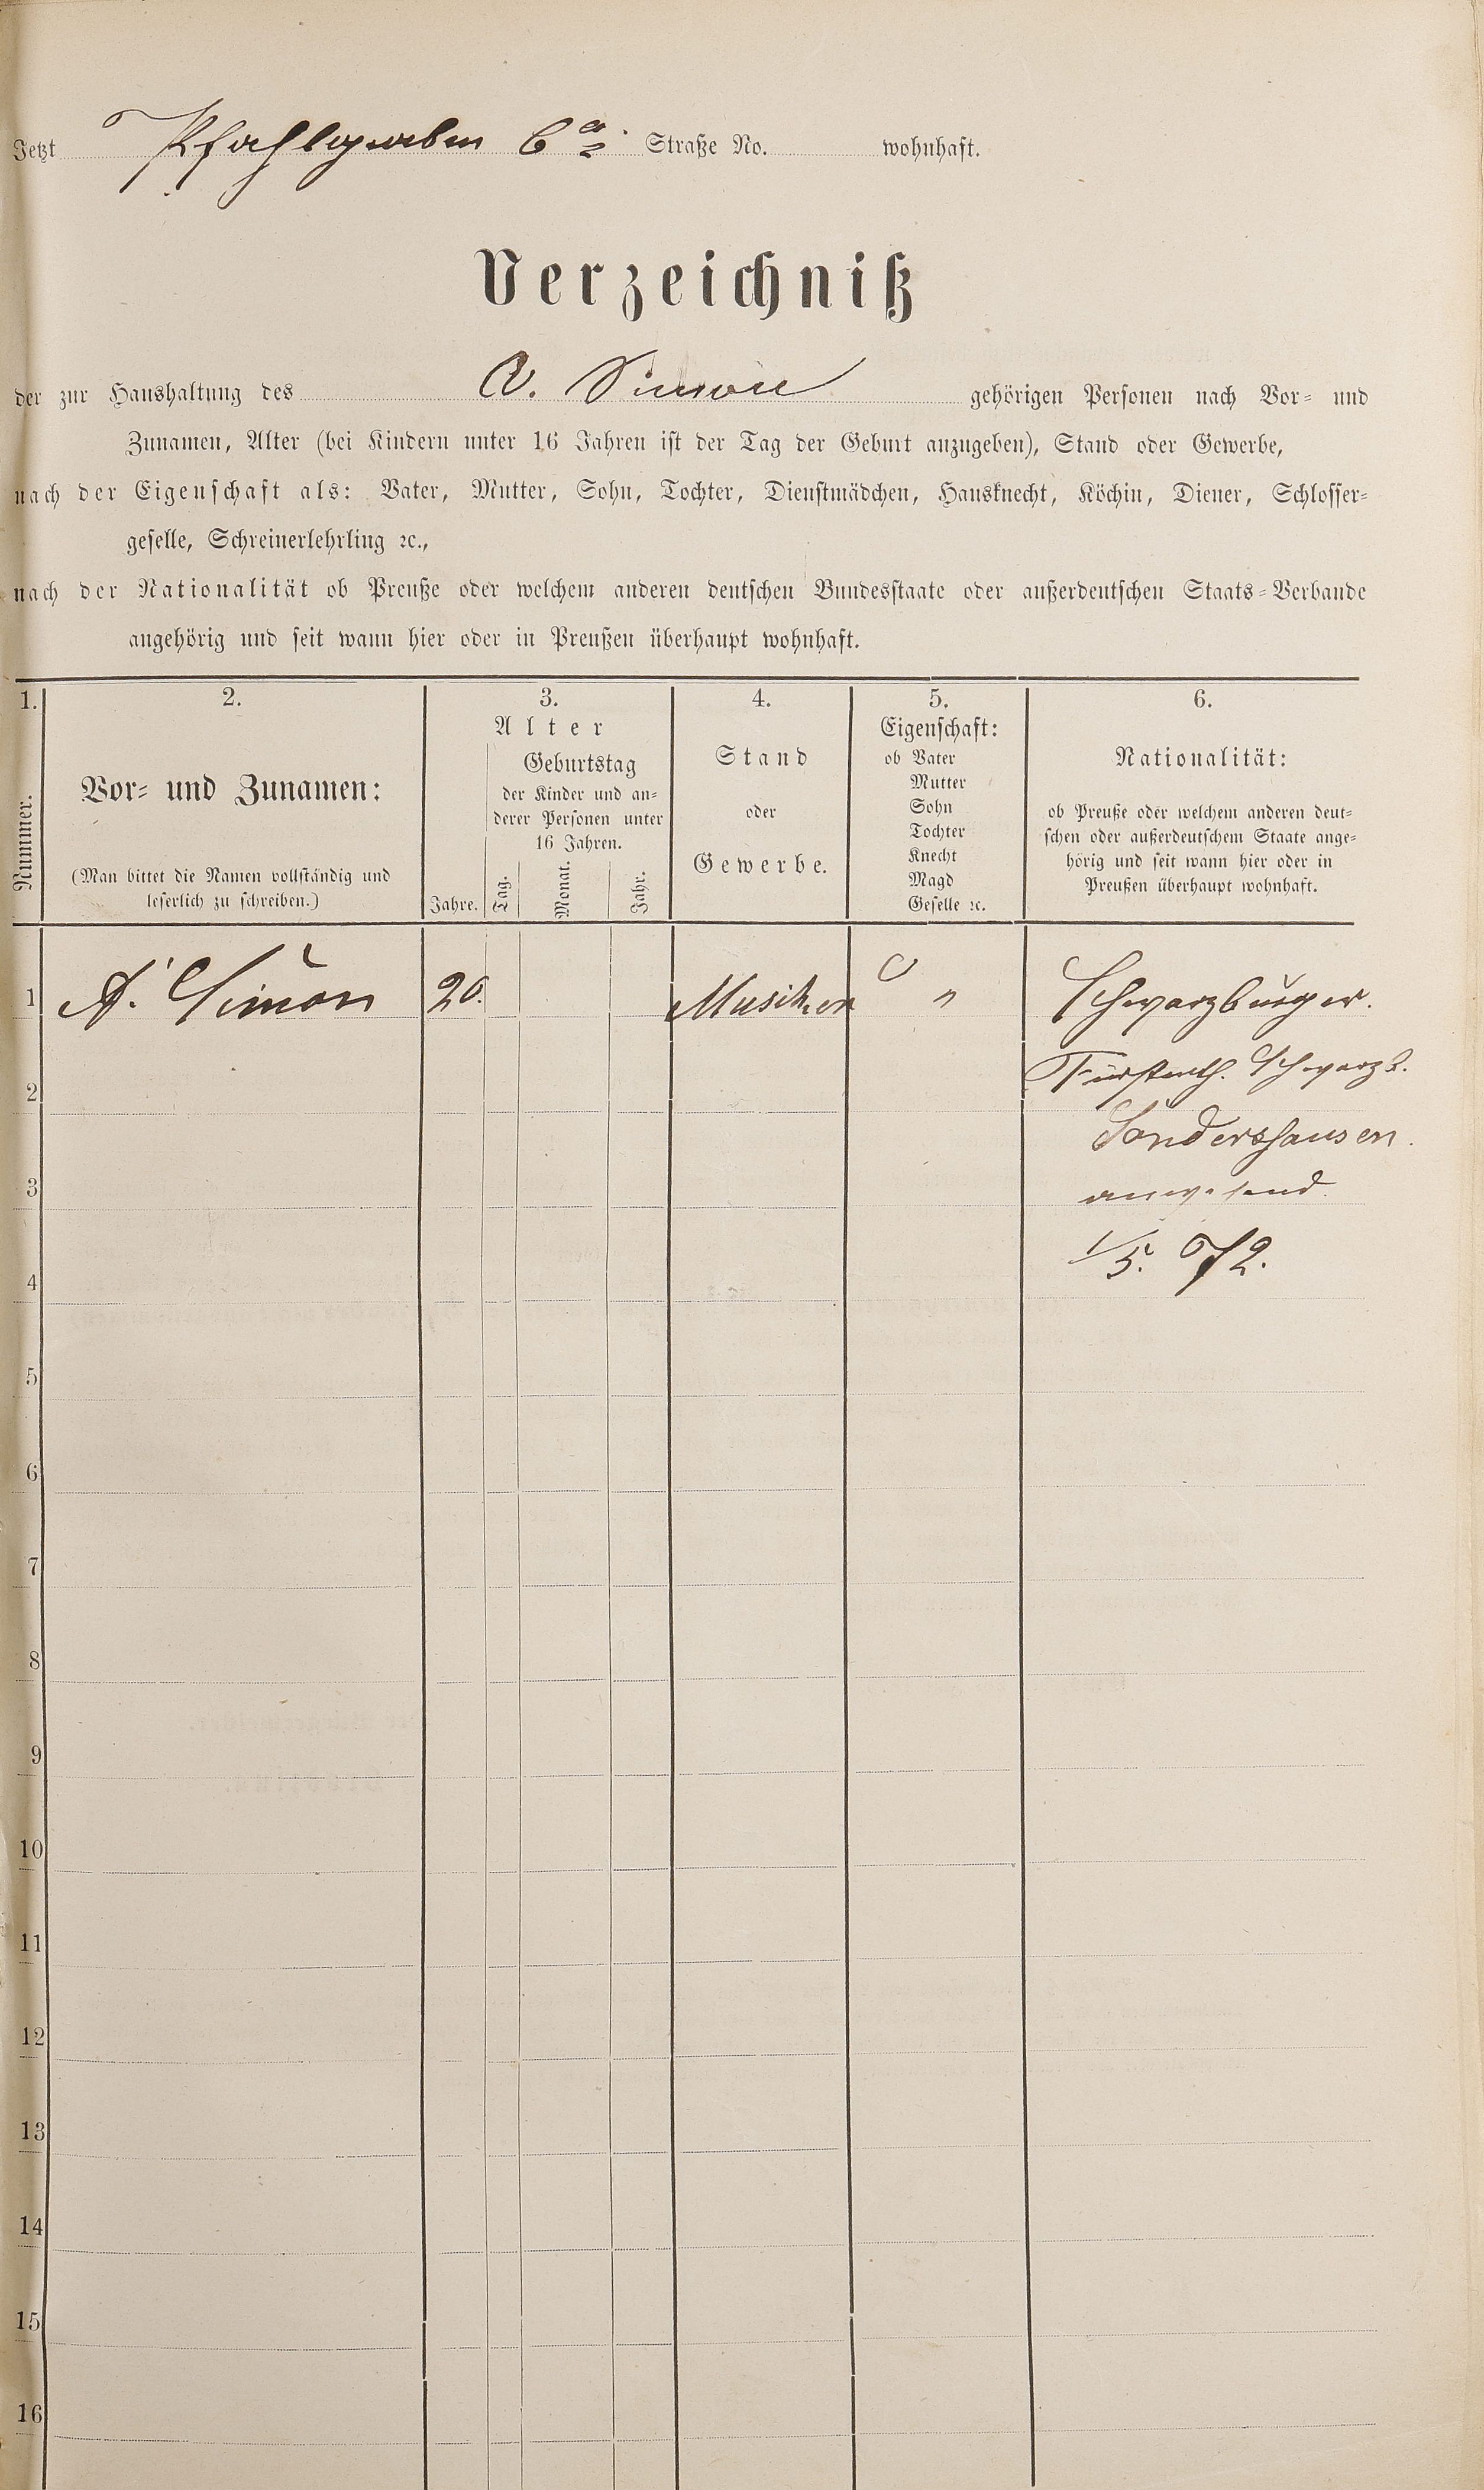 Jetzt Pfahlgraben 6a Straße No. wohnhaft.
Verzeichniß
der zur Haushaltung des A. Simon gehörigen Personen nach Vor- und
Zunamen, Alter (bei Kindern unter 16 Jahren ist der Tag der Geburt anzugeben), Stand oder Gewerbe,
nach der Eigenschaft als: Vater, Mutter, Sohn, Tochter, Dienstmädchen, Hausknecht, Köchin, Diener, Schlosser-
geselle, Schreinerlehrling ꝛc.,
nach der Nationalität ob Preuße oder welchem anderen deutschen Bundesstaate oder außerdeutschen Staats-Verbande
angehörig und seit wann hier oder in Preußen überhaupt wohnhaft.
1. 2. 3. 4. 5. 6.
Nummer.
Vor- und Zunamen:
(Man bittet die Namen vollständig und
leserlich zu schreiben.)
Alter
Jahre.
Geburtstag
der Kinder und an-
derer Personen unter
16 Jahren.
Tag. Monat. Jahr.
Stand
oder
Gewerbe.
Eigenschaft:
ob Vater
Mutter
Sohn
Tochter
Knecht
Magd
Geselle ꝛc.
Nationalität:
ob Preuße oder welchem anderen deut-
schen oder außerdeutschem Staate ange-
hörig und seit wann hier oder in
Preußen überhaupt wohnhaft.
1 A. Simon 20. Musiker " Schwarzburger.
2 Fürstenth. Schwarzb.
Sondershausen.
3 anwesend.
1/5. 72.
4
5
6
7
8
9
10
11
12
13
14
15
16